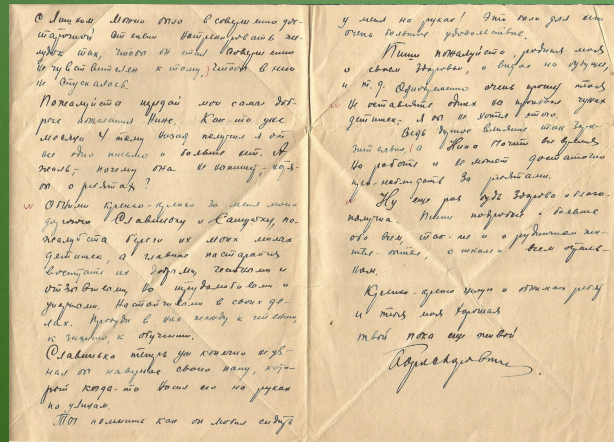 можно было в совершенно дос-
таточной степени натренировать же-
лудок так, чтобы он стал совершенно
нечувствителен к тому, чтобы в него
не спускалось.
Пожалуйста передай мои самые доб-
рые пожелания Нине. Как-то уже
месяца 4 тому назад получил я от
нее одно письмо и больше нет. А
жаль, почему она не напишет, хотя-
бы о ребятах?
Обними крепко-крепко за меня моих
дорогих Славика и по-
жалуйста береги их моих милых
детишек, а главное постарайся
воспитать их добрыми, честными и
отзывчивыми, но трудолюбивыми и
упорными. Настойчивыми в своих де-
лах. Пробуди в них жажду к чтению,
к знанию, к обучению.
Славинька теперь уж конечно не уз-
нал бы наверное своего папу, кото-
рый когда-то носил его на руках
по улицам.
Ты помнишь как он любил сидеть
у меня на руках! Это было для него
очень большое удовольствие.
Пиши пожалуйста, родная моя
о своем здоровьи, о видах на будущее
и т.д. Одновременно очень прошу тебя
не оставлять одних на произвол чужих
детишек. Я бы не хотел этого.
Ведь дурное влияние так
а Нина почти все время
на работе и не может достаточно
наблюдать за ребятами.
Ну еще раз будь здорова и благо-
получна. Пиши подробно и больше
обо всем, так-же и о рудничном жи-
тье-бытье, о школе и всем осталь-
ном.
Крепко-крепко целую и обнимаю ребят
и тебя моя хорошая
твой пока еще живой